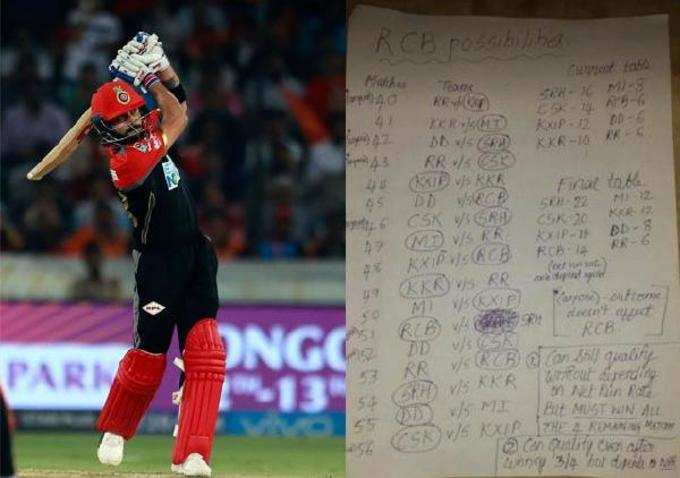 PARK
ONGC
-13
vivo
RCB possibilities
Matches Teams Current table
40 RR v/s SRH - 16 MI - 8
41 KKR v/s MI CSK - 14 RCB - 6
42 DD v/s SRH KXIP - 12 DD - 6
43 RR v/s CSK KKR - 10 RR - 6
44 KXIP v/s KKR Final table
45 DD v/s RCB SRH - 22 MI - 12
46 CSK v/s SRH CSK - 20 KKR - 12
47 MI v/s RR KXIP - 18 DD - 8
48 KXIP v/s RCB RCB - 14 RR - 6
49 KKR v/s RR
50 MI v/s KXIP (anyone) - outcome
51 RCB v/s SRH doesn't affect
52 DD v/s CSK RCB
53 RR v/s RCB ① Can still qualify
54 SRH v/s KKR without depending
on Net Run Rate
55 DD v/s MI But MUST WIN ALL
56 CSK v/s KXIP THE 4 REMAINING
② Can Qualify even after
winning 3/4 but depends on NRR